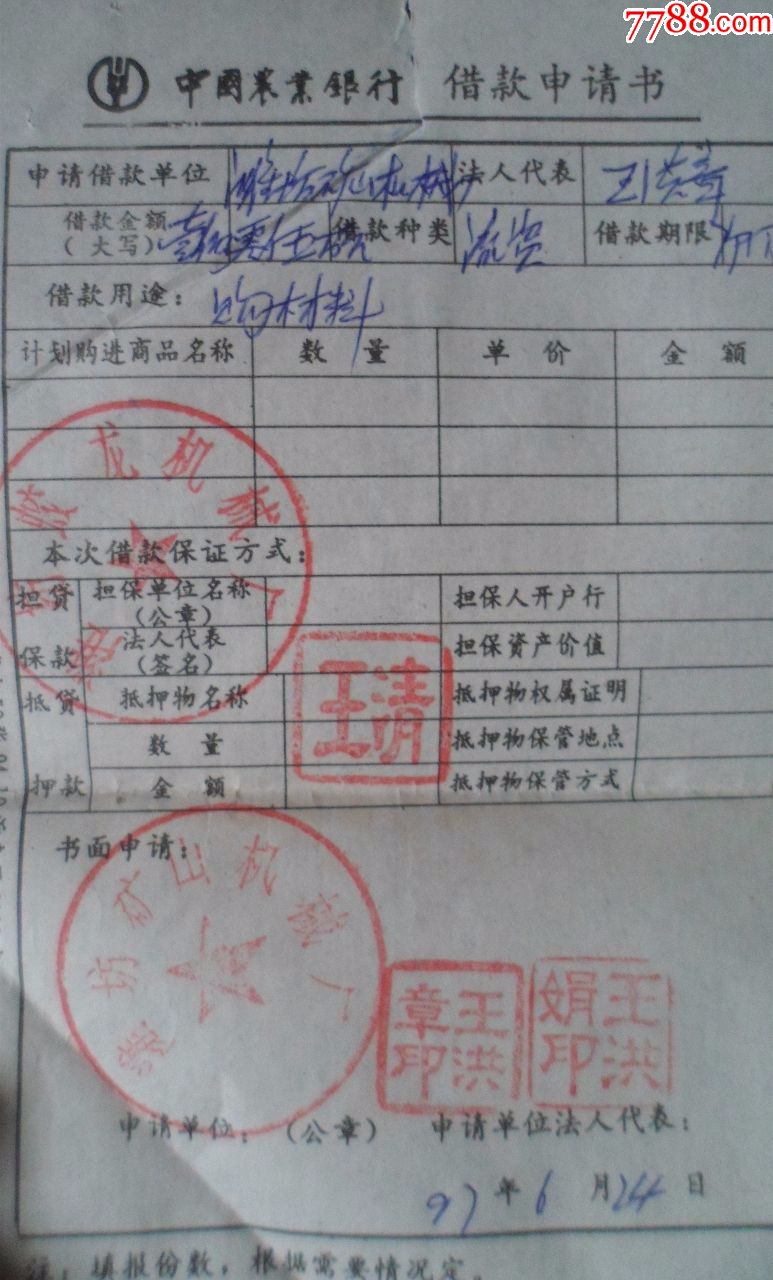 7788.com
中國農業銀行 借款申请书
申请借款单位 潍坊矿山机械厂 法人代表 王洪章
借款金额 借款种类 流贷 借款期限
（大写）
借款用途： 购材料
计划购进商品名称 数 量 单 价 金 额
龙 机 械 厂
本次借款保证方式：
担贷 担保单位名称 担保人开户行
（公章）
保款 法人代表 担保资产价值
（签名）
抵贷 抵押物名称 抵押物权属证明
数 量 抵押物保管地点
押款 金 额 抵押物保管方式
王清
书面申请：
潍坊矿山机械厂
王洪章印 王洪娟印
申请单位：（公章） 申请单位法人代表：
97年6月24日
注：填报份数，根据需要情况定。